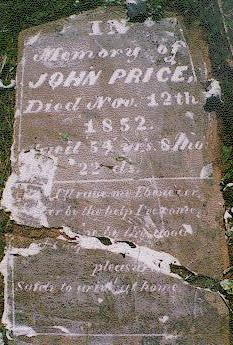 IN
Memory of
JOHN PRICE,
Died Nov. 12th
1852.
54 yrs. 8 mo
22 ds.
I'll raise my Ebenezer
by the help I'm come,
by the good
pleasure
Safely to arrive at home